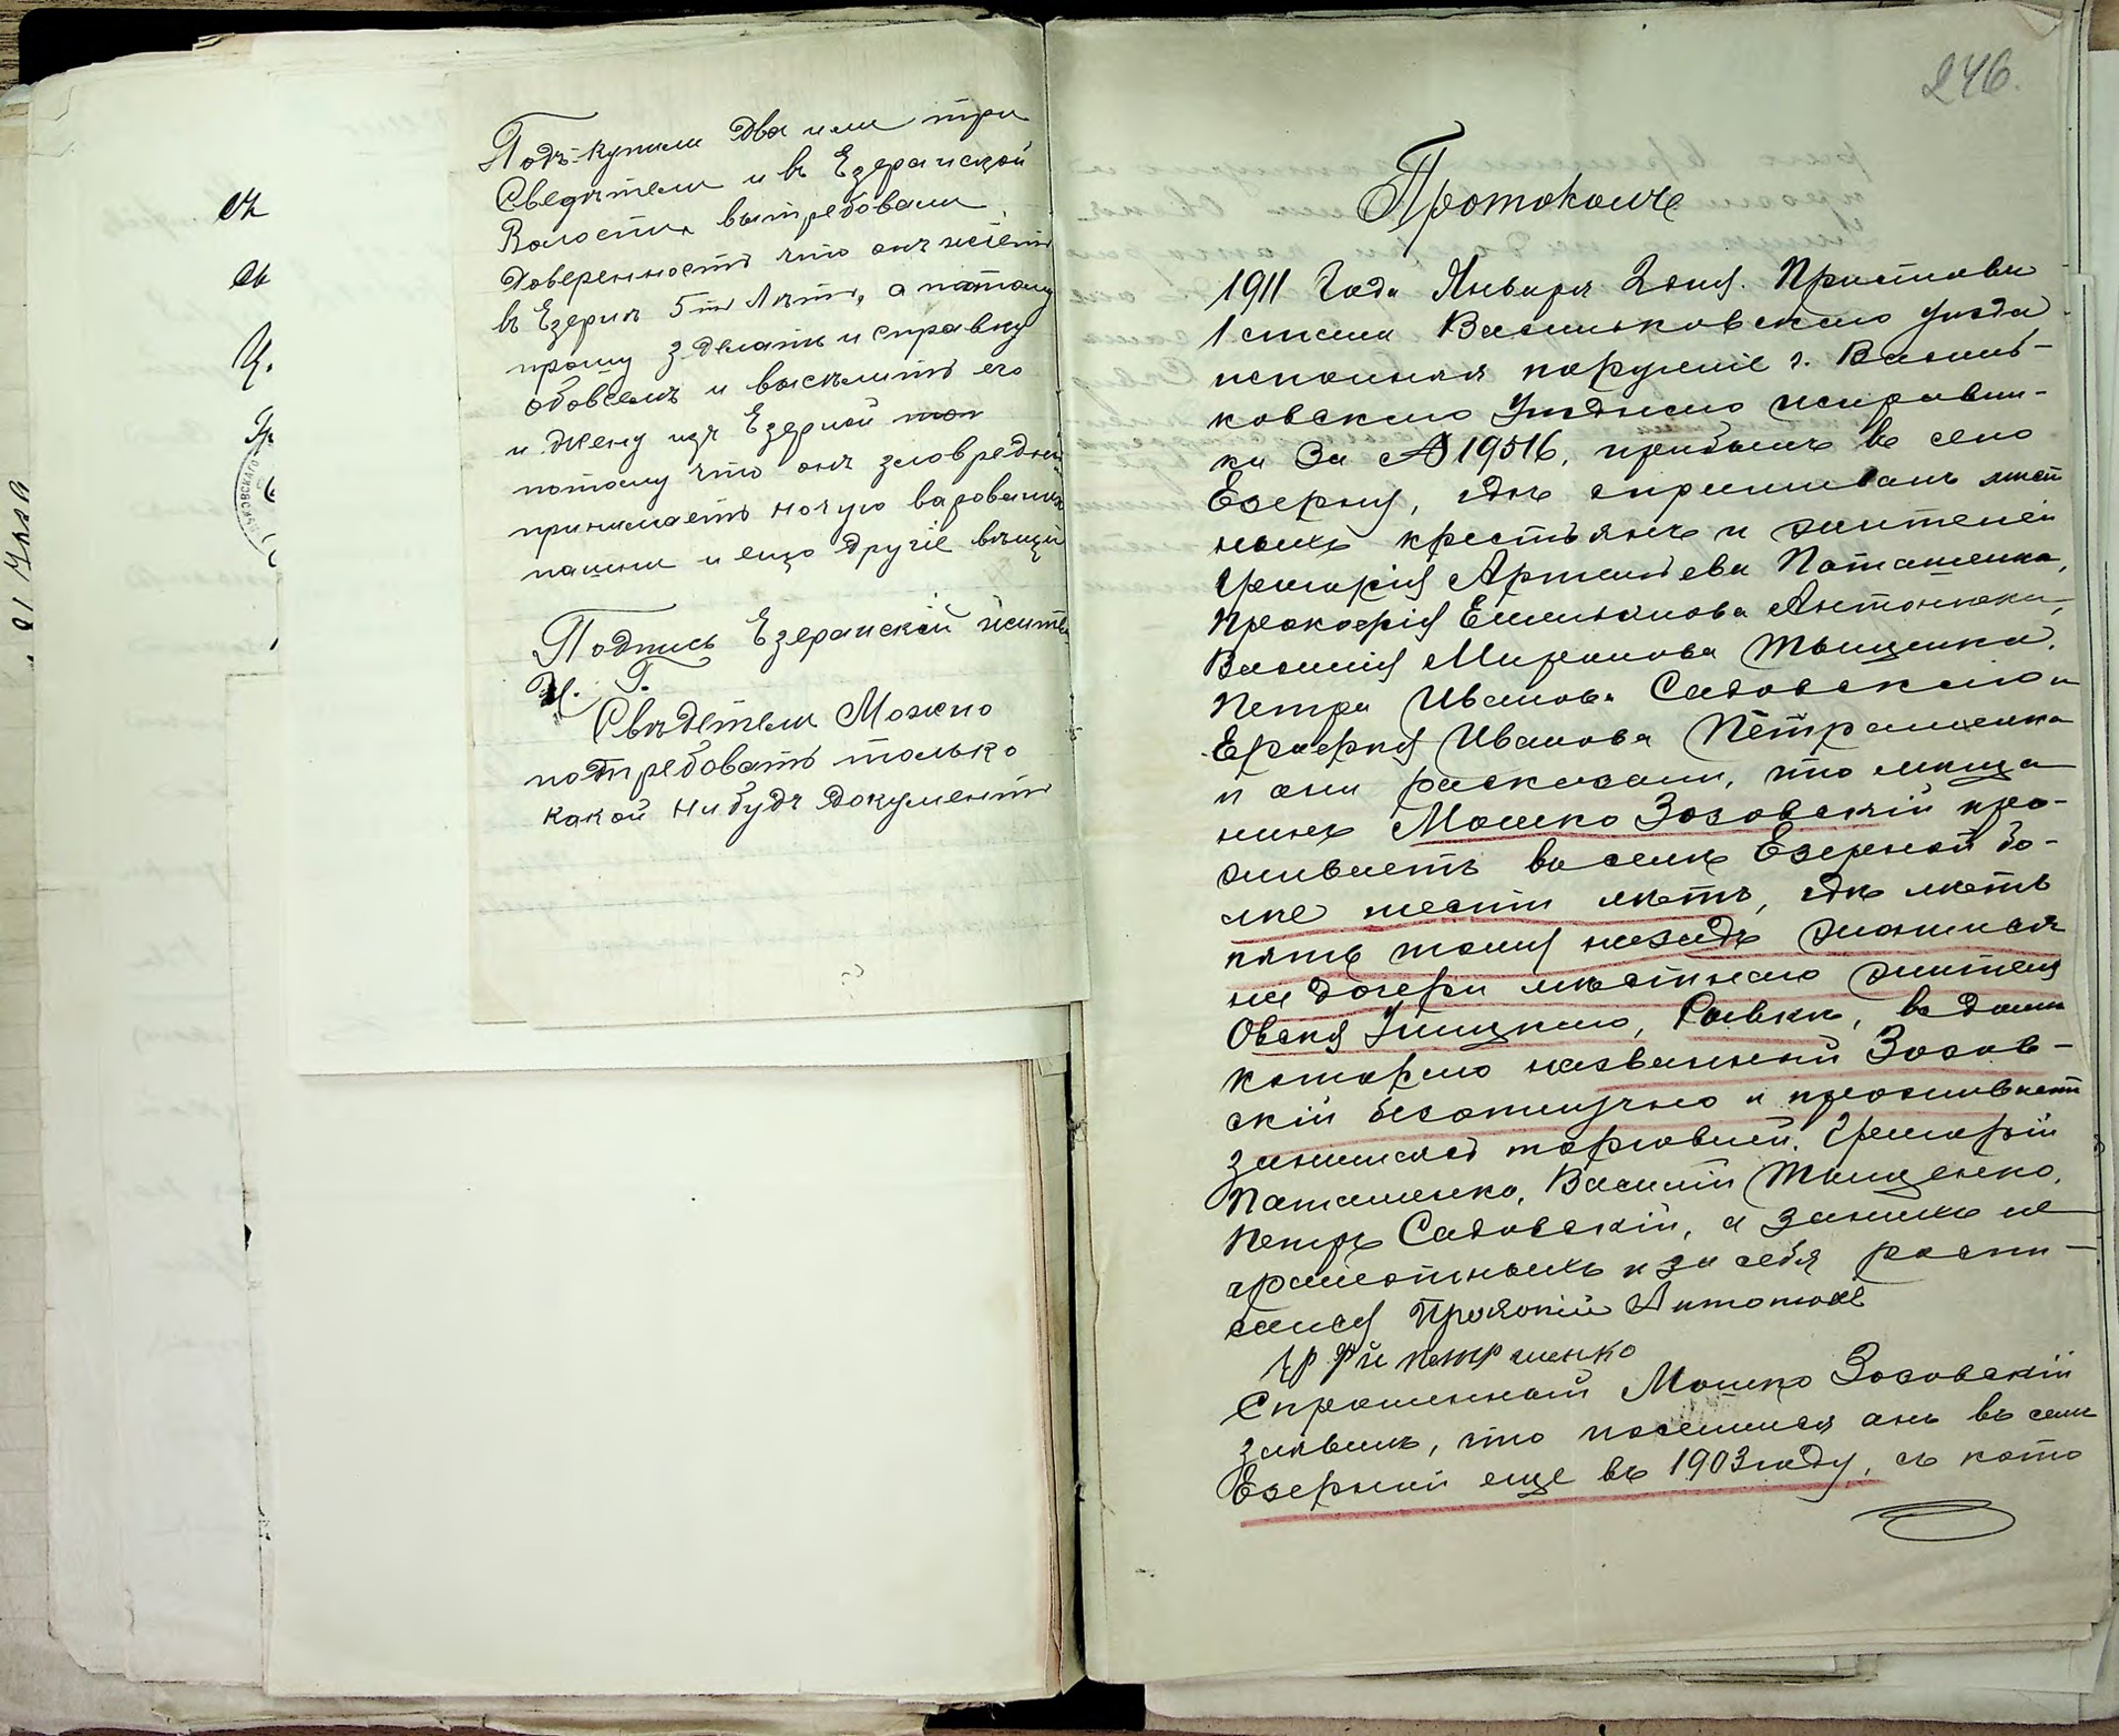 Подъ-купили два или три
Сведѣтели и въ Езеранской
Волости, вытребовали
доверенность что онъ жiетъ
въ Езерни 5ть Лѣтъ, а потому
прошу зделать и справку
обовсемъ и выселить его
и Жену изъ Езерной
потому что онъ зловредный
принимаетъ ночую варованыи
пашни и ещо другiе вѣщи
Подпись Езеранскiй жите
И. Г.
Свѣдѣтели Можно
потребовать только
какой нибудь документъ
246.
Протоколъ
1911 года Января 2 дня. Приставъ
1 стана Васильковскаго уѣзда
исполняя порученiе г. Василь-
ковскаго Уѣзднаго исправни-
ка за № 19516, прибылъ въ село
Езерну, гдѣ спрашивалъ мѣст
ныхъ крестьянъ и жителей
Григорiя Артемьева Поташенка,
Прокофiя Емельянова Антонюка,
Василiя Миронова Тыщенка,
Петра Иванова Садовскаго и
Ерофея Иванова Петрашенка
и они расказали, что мѣща
нинъ Мошко Зозовскiй про-
живаетъ въ селѣ Езерной бо-
лѣе шести лѣтъ, гдѣ лѣтъ
пять тому назадъ женился
на дочери мѣстнаго жителя
Овсѣя Униц­каго, Ривкѣ, въ домѣ
котораго названный Зозов-
скiй безотлучно и проживаетъ
занимаясь торговлей. Григорiй
Поташенко, Василiй Тыщенко,
Петръ Садовскiй, а за нихъ не
грамотныхъ и за себя роспи-
сался Прокопiй Антонюкъ
Спрошенный Мошко Зозовскiй
заявилъ, что поселился онъ въ селѣ
Езерной еще въ 1903 году, съ кото